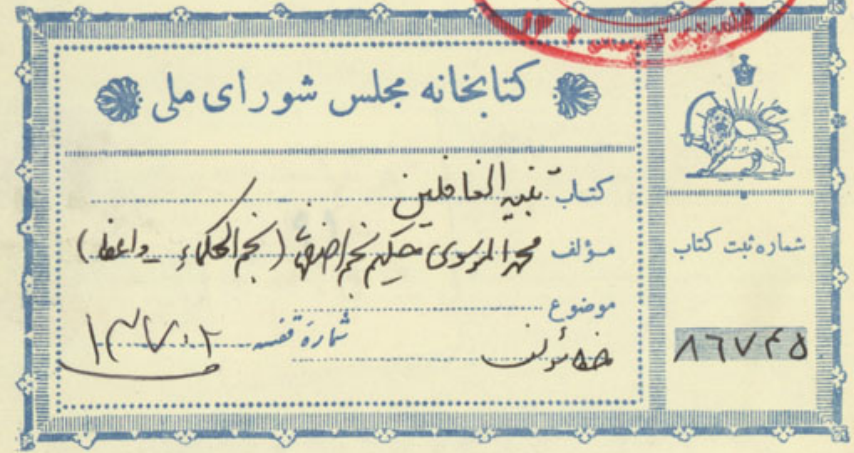 کتابخانه مجلس شورای ملی
کتاب تنبیه الغافلین
مؤلف محمد الموسوی حکیم نجم (نجم الحکماء - واعظ)
موضوع
شمارهٔ قفسه ۱۳۷۰۲
شماره ثبت کتاب
۸۶۷۴۵